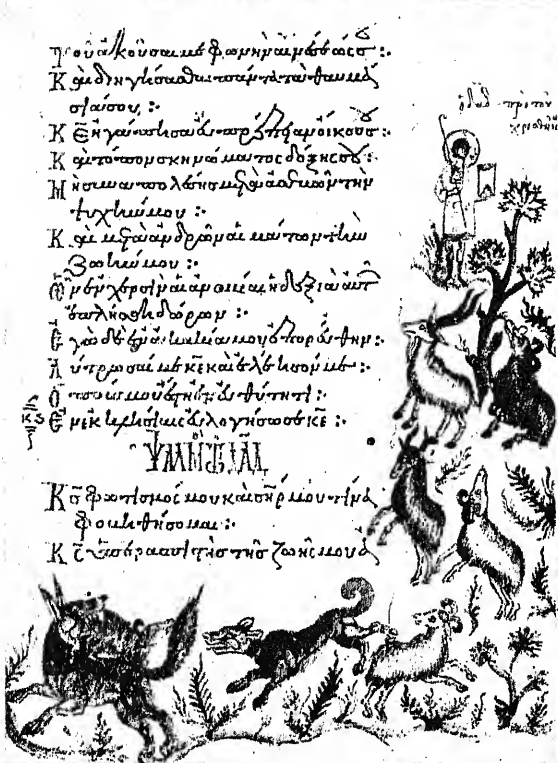 ὁ δαδ πρὸ τοῦ
χρισθῆναι
Τοῦ ἀκοῦσαι με φωνὴν αἰνέσεώς σου :·
Καὶ διηγήσασθαι πάντα τὰ θαυμά
σιά σου :·
Κε ἠγάπησα εὐπρέπειαν οἴκου σου
Καὶ τόπον σκηνώματος δόξης σου :·
Μὴ συναπολέσης μετὰ ἀσεβῶν τὴν
ψυχήν μου :·
Καὶ μετὰ ἀνδρῶν αἱμάτων τὴν
ζωήν μου :·
Ὧν ἐν χερσὶν αἱ ἀνομίαι ἡ δεξιὰ αὐτῶν
ἐπλήσθη δώρων :·
Ἐγὼ δὲ ἐν ἀκακία μου ἐπορεύθην :·
Λύτρωσαί με κε καὶ ἐλέησόν με :·
Ὁ πούς μου ἔστη ἐν εὐθύτητι :·
Ἐν ἐκκλησίαις εὐλογήσω σε κε :·
Κς φωτισμός μου καὶ σηρ μου τίνα
φοβηθήσομαι :·
Κς ὑπερασπιστὴς τῆς ζωῆς μου ἀ